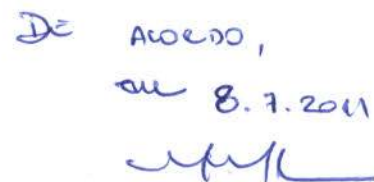 DE ACORDO,
em 8.7.2011